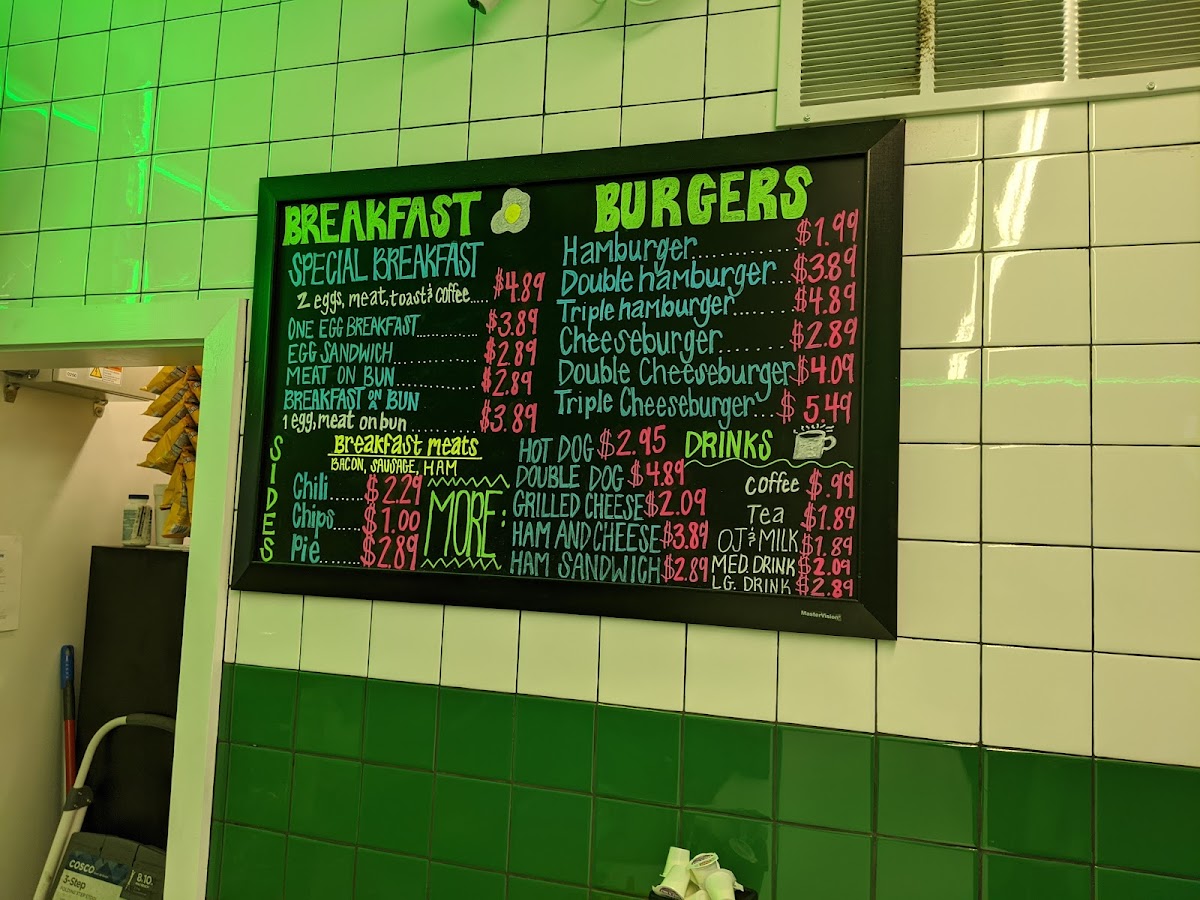 BREAKFAST
SPECIAL BREAKFAST
2 eggs, meat, toast & coffee..... $4.89
ONE EGG BREAKFAST.......... $3.89
EGG SANDWICH.............. $2.89
MEAT ON BUN.............. $2.89
BREAKFAST ON A BUN
1 egg, meat on bun.......... $3.89
Breakfast meats
BACON, SAUSAGE, HAM
SIDES
Chili....... $2.29
Chips..... $1.00
Pie........ $2.89
BURGERS
Hamburger............ $1.99
Double hamburger... $3.89
Triple hamburger....... $4.89
Cheeseburger........ $2.89
Double Cheeseburger $4.09
Triple Cheeseburger... $5.49
MORE:
HOT DOG $2.95
DOUBLE DOG $4.89
GRILLED CHEESE $2.09
HAM AND CHEESE $3.89
HAM SANDWICH $2.89
DRINKS
coffee $.99
Tea $1.89
OJ & MILK $1.89
MED. DRINK $2.09
LG. DRINK $2.89
MasterVision
COSCO
3-Step
8.10